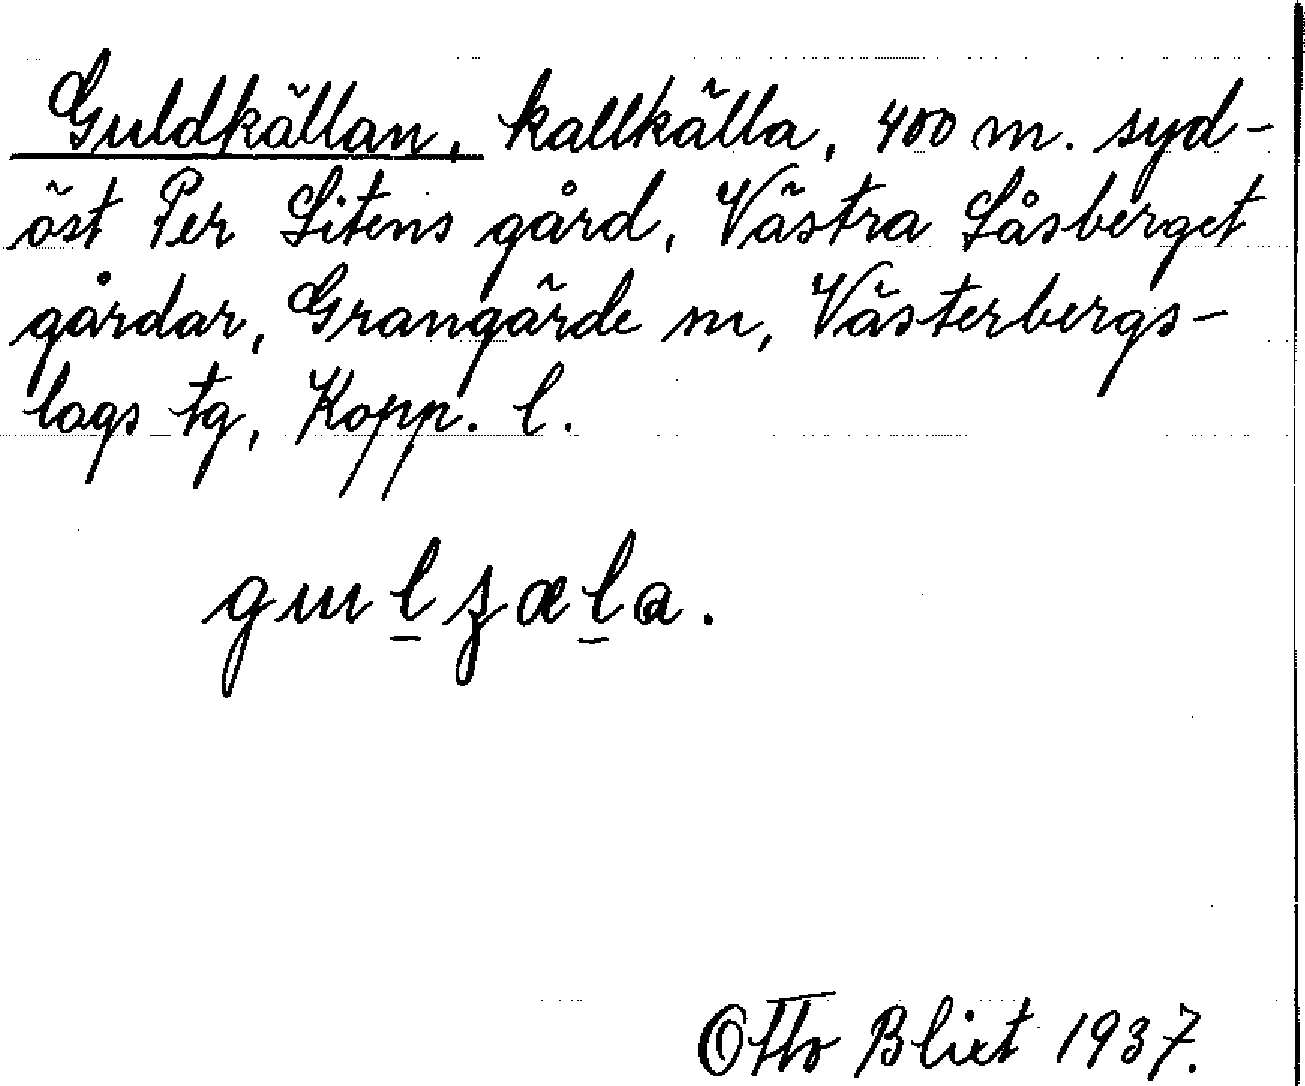 Guldkällan, kallkälla, 400 m. syd-
öst Per Litens gård, Västra Låsberget
gårdar, Grangärde sn, Västerbergs-
lags tg, Kopp. l.
Otto Blixt 1937.